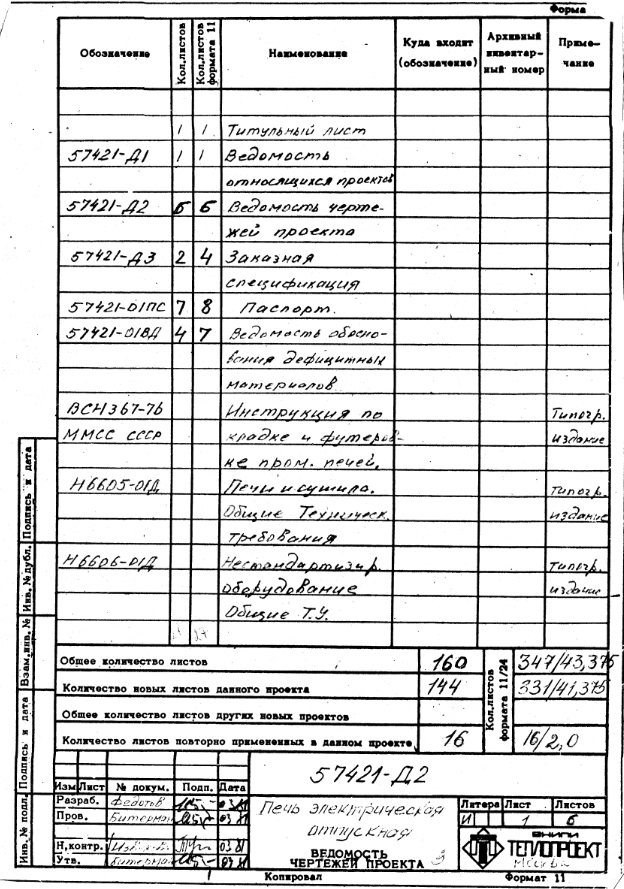 Форма
Обозначение Кол.листов Кол.листов формата 11 Наименование Куда входит (обозначение) Архивный инвентарный номер Примечание
1 1 Титульный лист
57421-Д1 1 1 Ведомость
относящихся проектов
57421-Д2 6 6 Ведомость черте-
жей проекта
57421-Д3 2 4 Заказная
спецификация
57421-01ПС 7 8 Паспорт.
57421-01ВД 4 7 Ведомость обосно-
вания дефицитных
материалов
ВСН367-76 Инструкция по Типогр.
ММСС СССР кладке и футеров- издание
ке пром. печей.
Н6605-01Д Печи и сушила. типогр.
Общие Техническ. издание
требования
Н6606-01Д Нестандартизир. типогр.
оборудование издание
Общие Т.У.
Общее количество листов 160 Кол.листов формата 11/24 347/43,375
Количество новых листов данного проекта 144 331/41,375
Общее количество листов других новых проектов
Количество листов повторно примененных в данном проекте 16 16/2,0
57421-Д2
Изм Лист № докум. Подп. Дата
Разраб. Федотов 03.81
Пров. Битерман 03.81
Н.контр. 03.81
Утв. Битерман 03.81
Печь электрическая
отпускная
ВЕДОМОСТЬ
ЧЕРТЕЖЕЙ ПРОЕКТА 3
Литера Лист Листов
И 1 6
ВНИПИ
ТЕПЛОПРОЕКТ
Москва
Копировал Формат 11
Инв. № подл. Подпись и дата Взам.инв. № Инв. № дубл. Подпись и дата